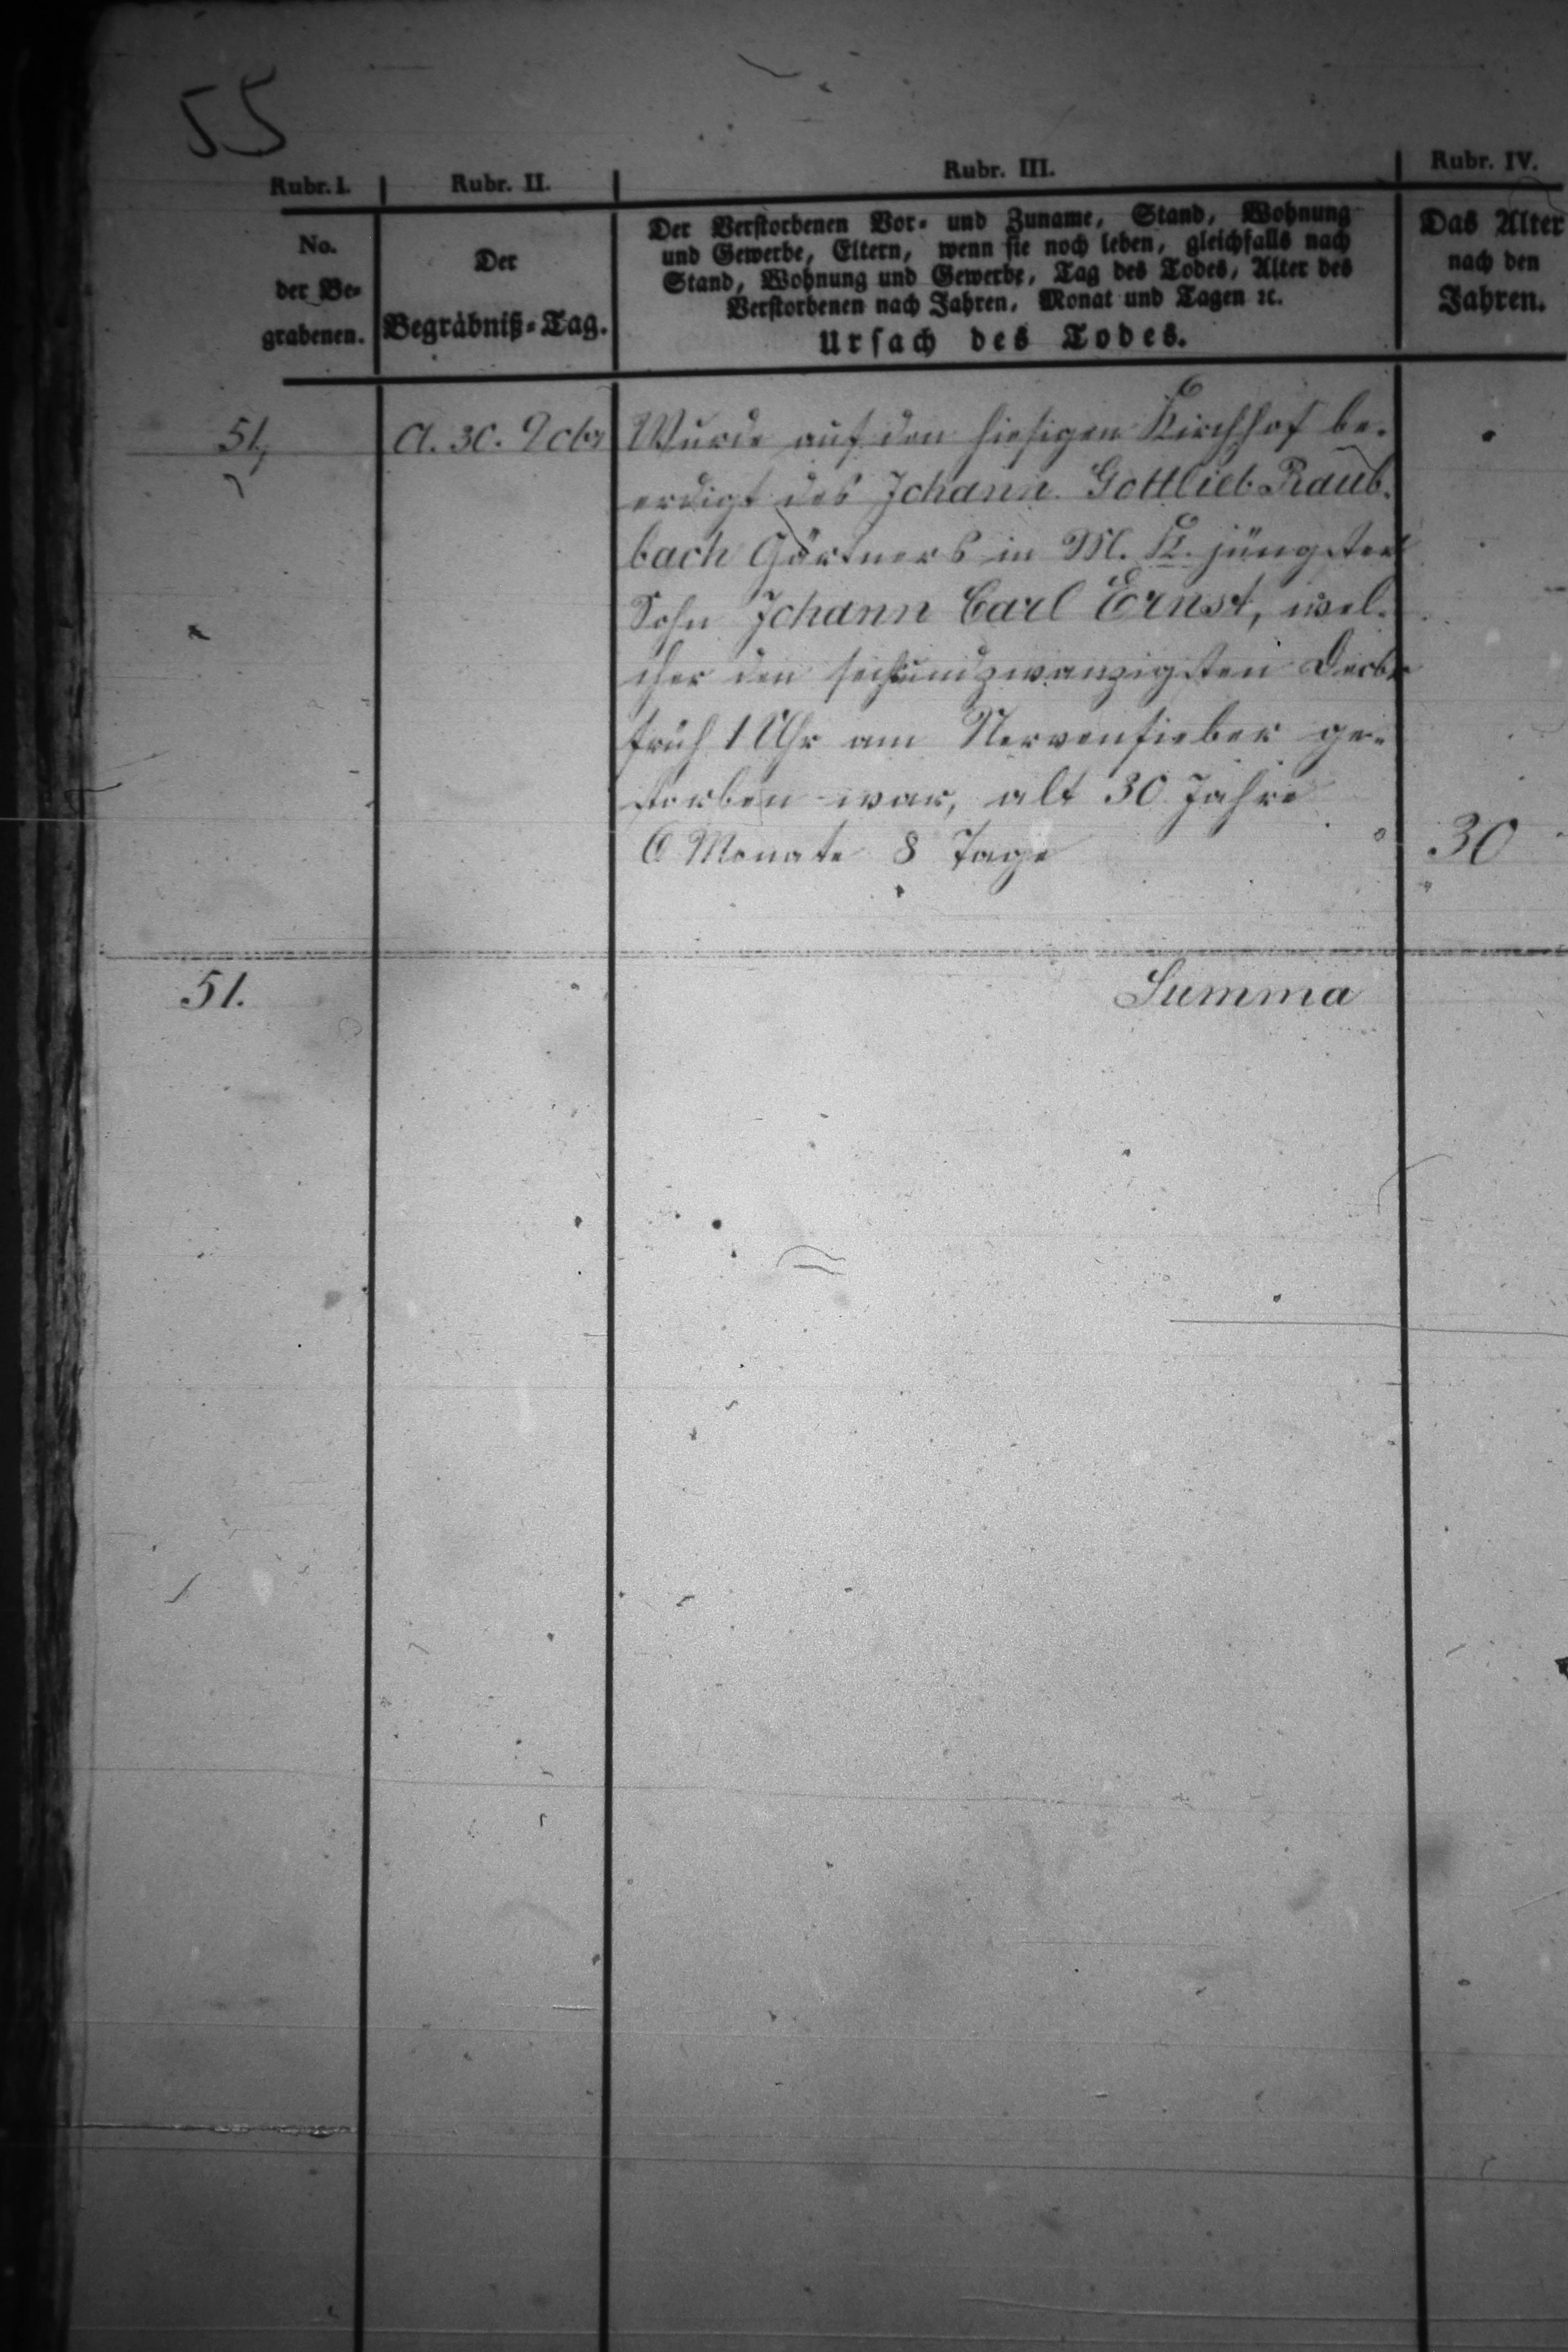 55
Rubr. I. Rubr. II. Rubr. III. Rubr. IV.
No. der Be-grabenen.
Der Begräbniß-Tag.
Der Verstorbenen Vor- und Zuname, Stand, Wohnung
und Gewerbe, Eltern, wenn sie noch leben, gleichfalls nach
Stand, Wohnung und Gewerbe, Tag des Todes, Alter des
Verstorbenen nach Jahren, Monat und Tagen ꝛc.
Ursach des Todes.
Das Alter
nach den
Jahren.
51, d. 30. Wurde auf den hiesigen Kirchhof be-
erdigt des Johann Gottlieb Raub-
bach Gärtners in M. K. jüngster
Sohn Johann Carl Ernst, wel-
cher den sechsundzwanzigsten Decbr
früh 1 Uhr am Nervenfieber ge-
storben war, alt 30 Jahre
6 Monate 8 Tage 30
51. Summa